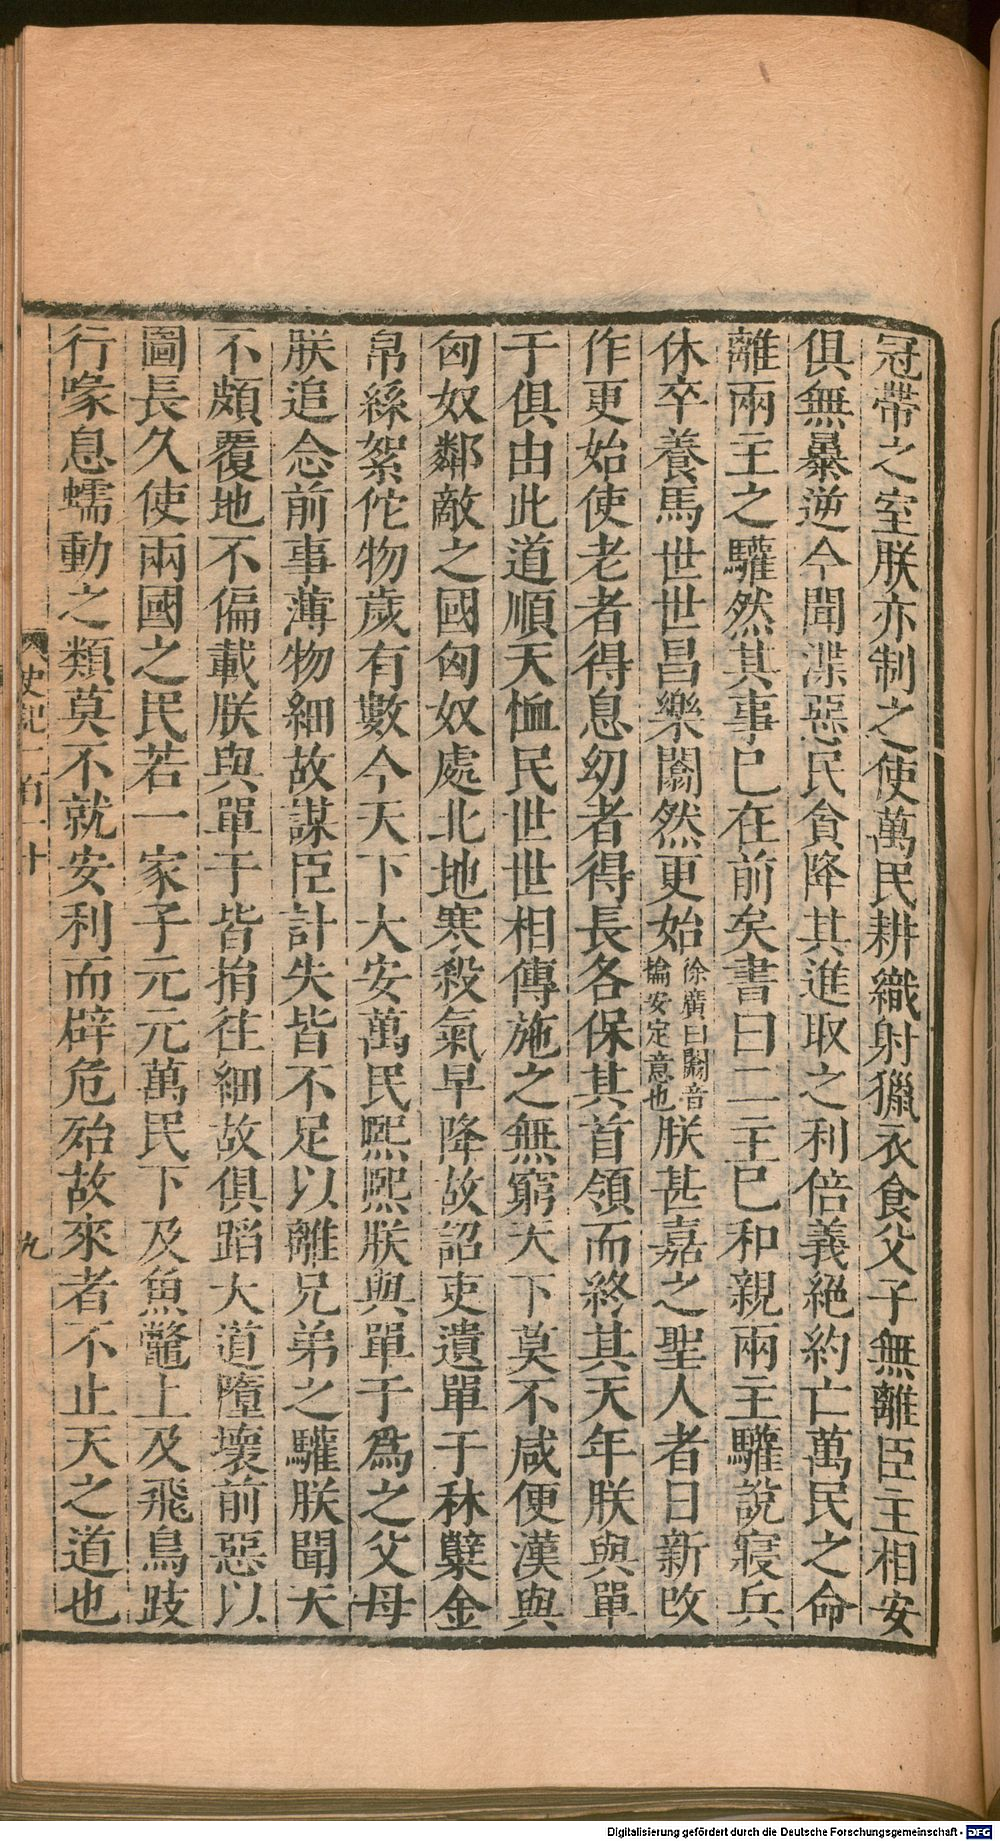 冠帶之室朕亦制之使萬民耕織射獵衣食父子無離臣主相安
俱無暴逆今聞渫惡民貪降其進取之利倍義絕約亡萬民之命
離兩主之驩然其事已在前矣書曰二主已和親兩主驩說寢兵
休卒養馬世世昌樂闟然更始徐廣曰闟音搶安定意也朕甚嘉之聖人者日新改
作更始使老者得息幼者得長各保其首領而終其天年朕與單
于俱由此道順天恤民世世相傳施之無窮天下莫不咸便漢與
匈奴鄰敵之國匈奴處北地寒殺氣早降故詔吏遺單于秫糱金
帛絲絮佗物歲有數今天下大安萬民熙熙朕與單于為之父母
朕追念前事薄物細故謀臣計失皆不足以離兄弟之驩朕聞天
不頗覆地不偏載朕與單于皆捐往細故俱蹈大道墮壞前惡以
圖長久使兩國之民若一家子元元萬民下及魚鼈上及飛鳥跂
行喙息蠕動之類莫不就安利而辟危殆故來者不止天之道也
史記一百一十
九
Digitalisierung gefördert durch die Deutsche Forschungsgemeinschaft - DFG